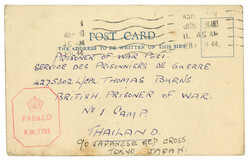 POST CARD
THE ADDRESS TO BE WRITTEN ON THIS SIDE
PRISONER OF WAR POST
SERVICE DES PRISONNIERS DE GUERRE
4275302 L/CPL THOMAS BURNS
BRITISH PRISONER OF WAR
No 1 CAMP.
THAILAND.
C/O JAPANESE RED CROSS
TOKYO JAPAN.
PASSED
P.W. 7765